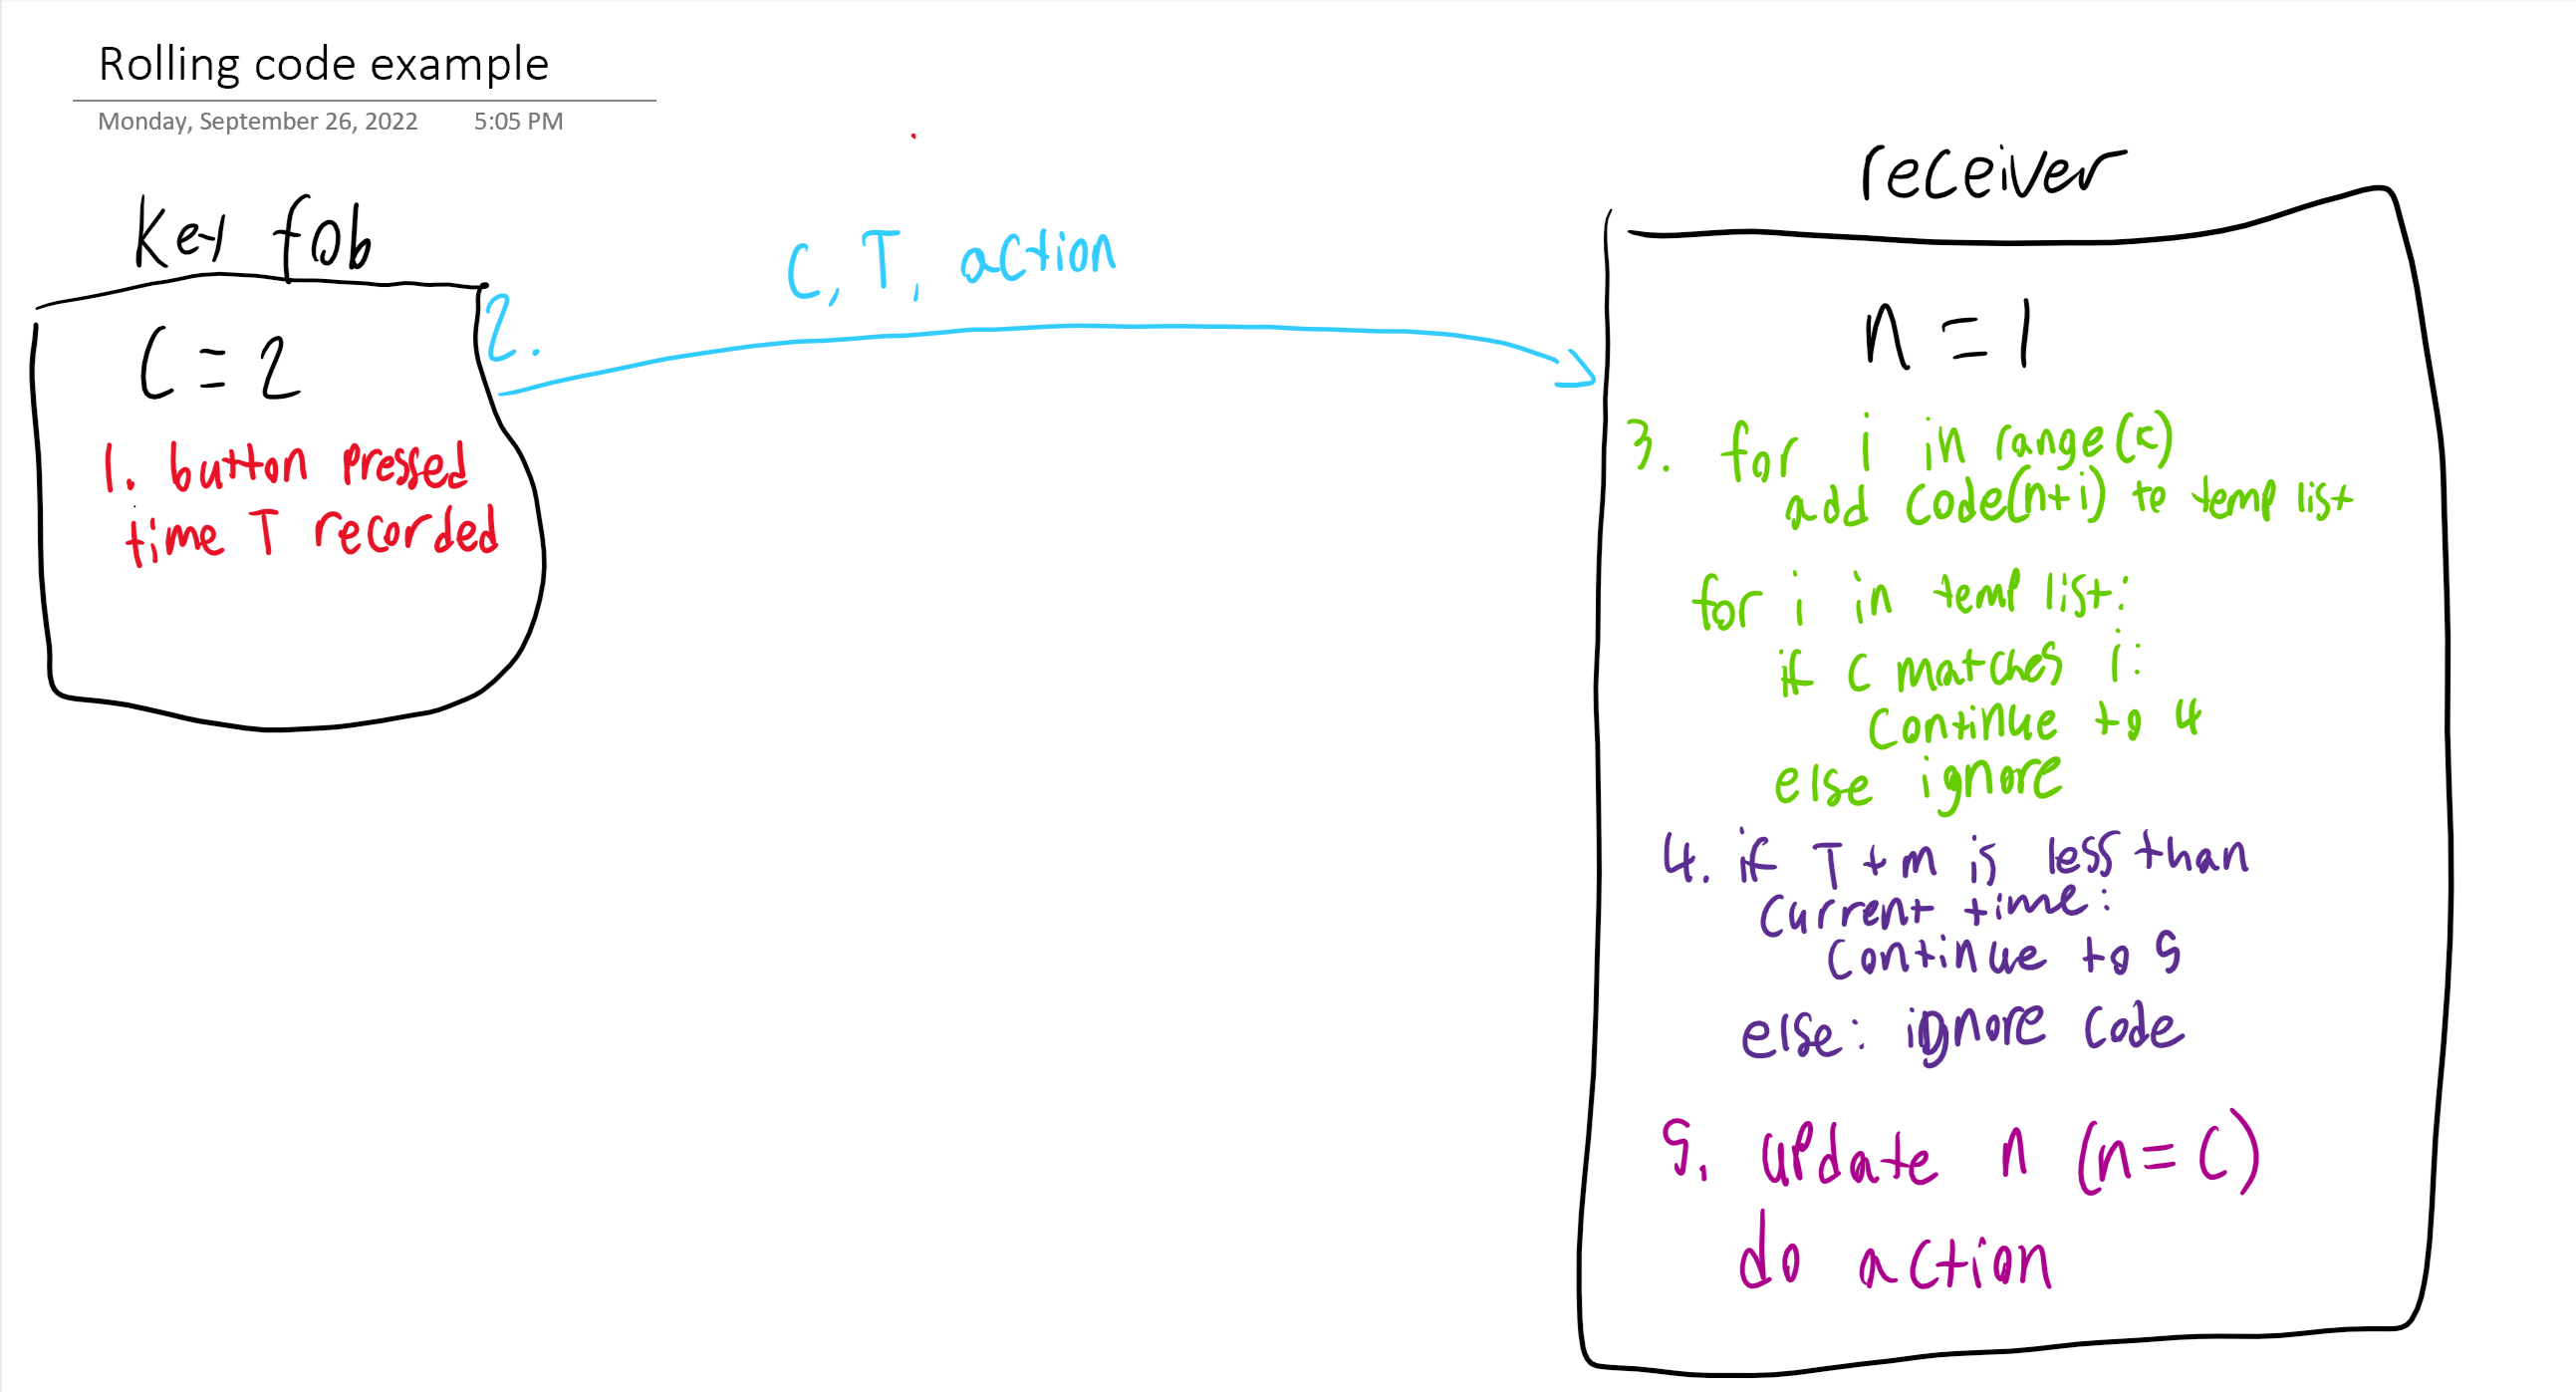 Rolling code example
Monday, September 26, 2022 5:05 PM
Key fob
C = 2
1. button pressed
time T recorded
2.
C, T, action
receiver
n = 1
3. for i in range(k)
add code(n+i) to temp list
for i in temp list:
if C matches i:
Continue to 4
else ignore
4. if T + m is less than
Current time:
Continue to 5
else: ignore code
5. update n (n = C)
do action